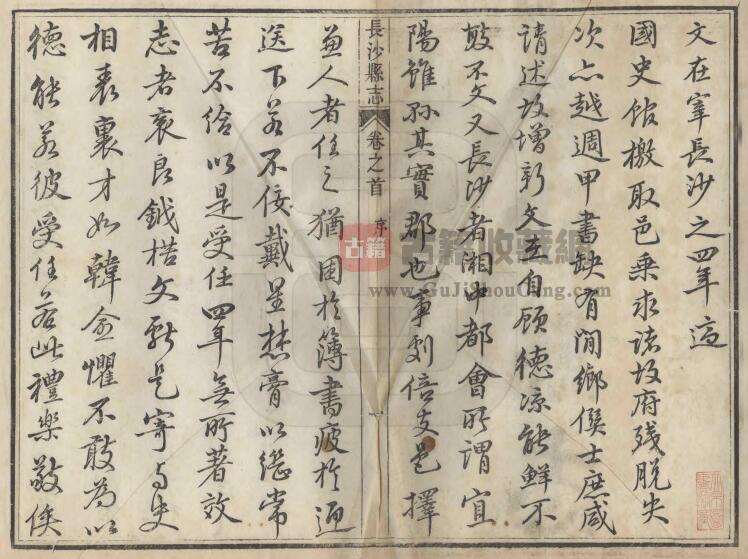 文在宰長沙之四年適
國史館檄取邑乘求諸故府殘脫失
次亦越週甲書缺有間鄉僎士庶咸
請述故增新文在自顧德涼能鮮不
敢不文又長沙者湘中都會所謂宜
陽雖縣其實郡也事劇倍支邑擇
長沙縣志
卷之首 序
一
兼人者任之猶困於簿書疲於迎
送下若不佞戴星焚膏以繼常
苦不給以是受任四年無所著效
志者衷良鉞楛文獻是寄与史
相表裏才如韓愈懼不敢為以
德能若彼受任若此禮樂敬俟
古籍
古籍收藏網
www.GuJiShouCang.com